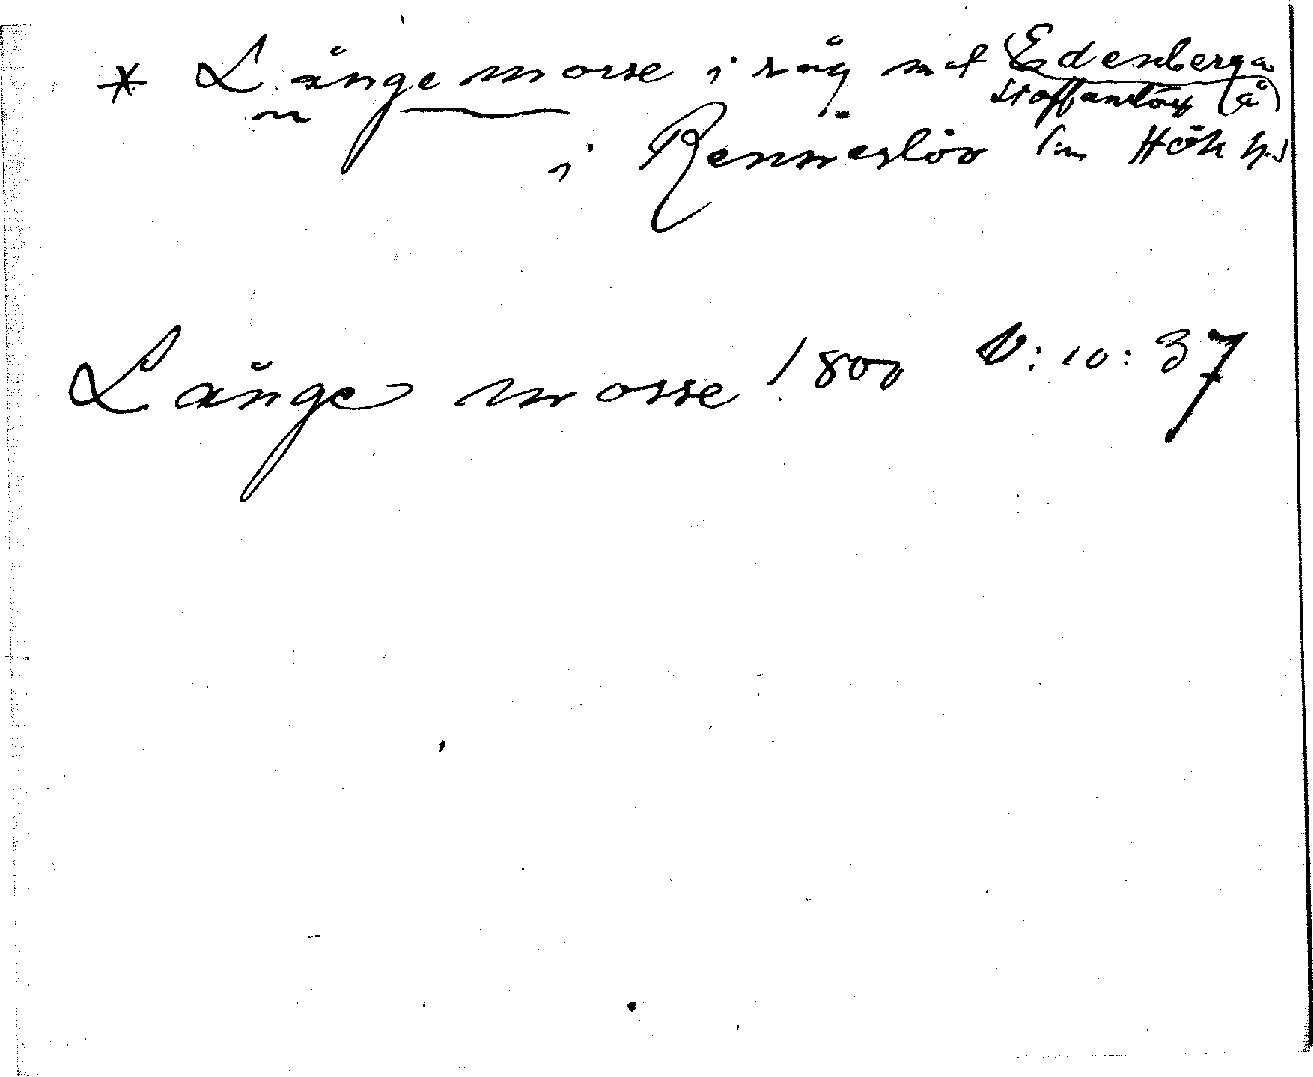 * Långe mosse i råg mot Edenberga
Staffanstorp (å)
i Renneslöv sn Hök hd
Långe mosse 1800 V:10:37